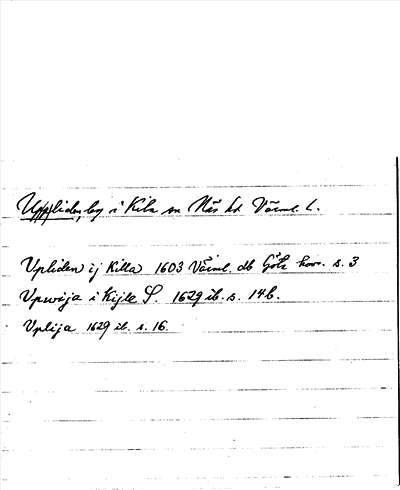 Uppliden, by i Kila sn Näs hd Värml. l.
Upliden ij Killa 1603 Värml. db Göta hovr. s. 3
Upwija i Kijle S. 1629 ib. s. 14b.
Uplija 1629 ib. s. 16.